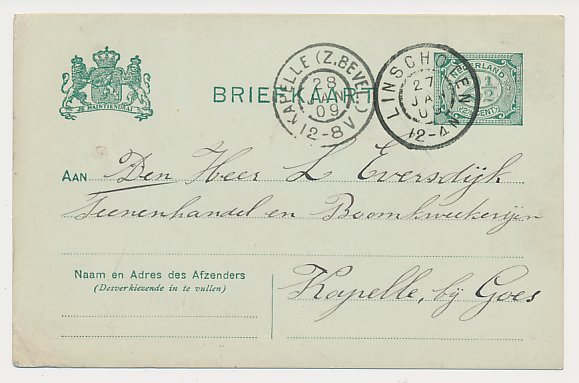 JE MAINTIENDRAI
BRIEFKAART
KAPELLE (Z.BEVEL.)
28 JAN 09
12-8V
LINSCHOTEN
27 JAN 09
12-4N
NEDERLAND
2½
CENT
AAN Den Heer L Eversdijk
Teenenhandel en Boomkweekerijen
Naam en Adres des Afzenders
(Desverkiezende in te vullen)
Kapelle, bij Goes